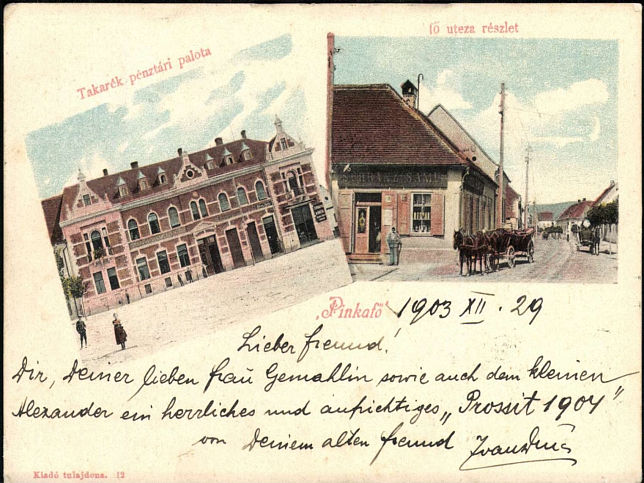 Takarék pénztári palota
fő uteza részlet
"Pinkafő"
1903 XII. 29
Lieber Freund!
Dir, Deiner lieben Frau Gemahlin sowie auch dem kleinen
Alexander ein herrliches und aufrichtiges „Prossit 1904"
von Deinem alten Freund
Kiadó tulajdona. 12